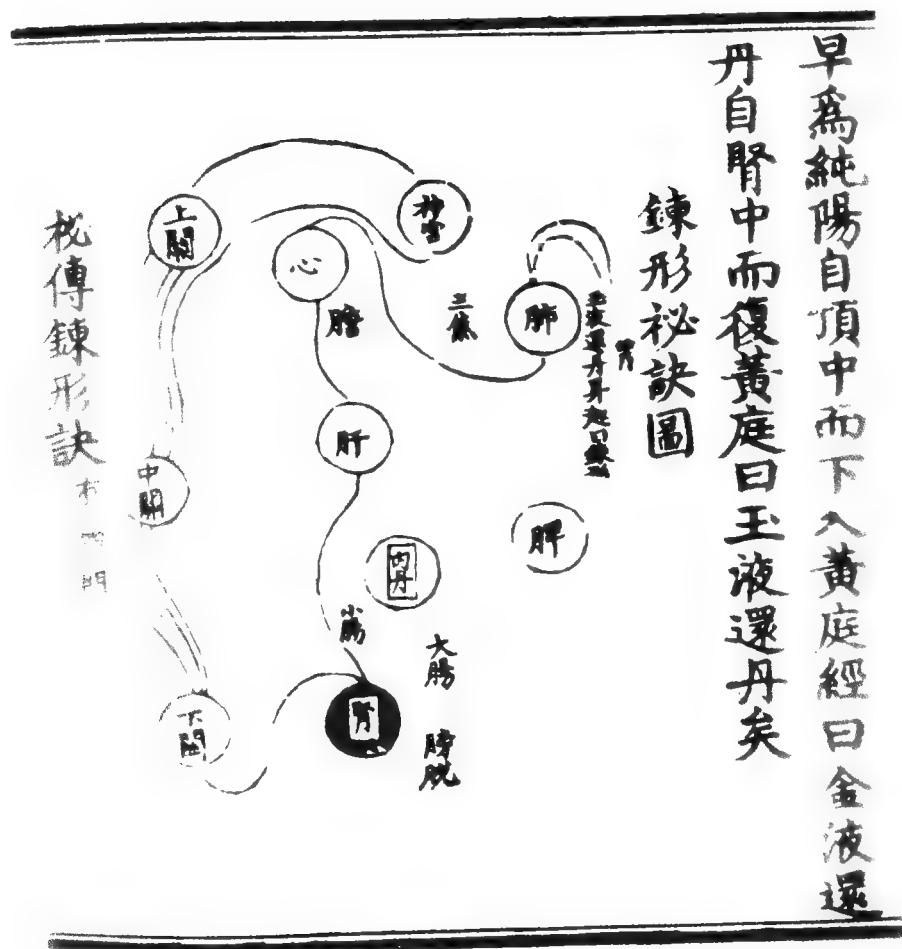 早爲純陽自頂中而下入黃庭經曰金液還
丹自腎中而復黃庭曰玉液還丹矣
鍊形祕訣圖
胃
肺
三焦
脾
上關
心
膽
肝
內丹
小腸
大腸
膀胱
腎
中關
下關
秘傳鍊形訣